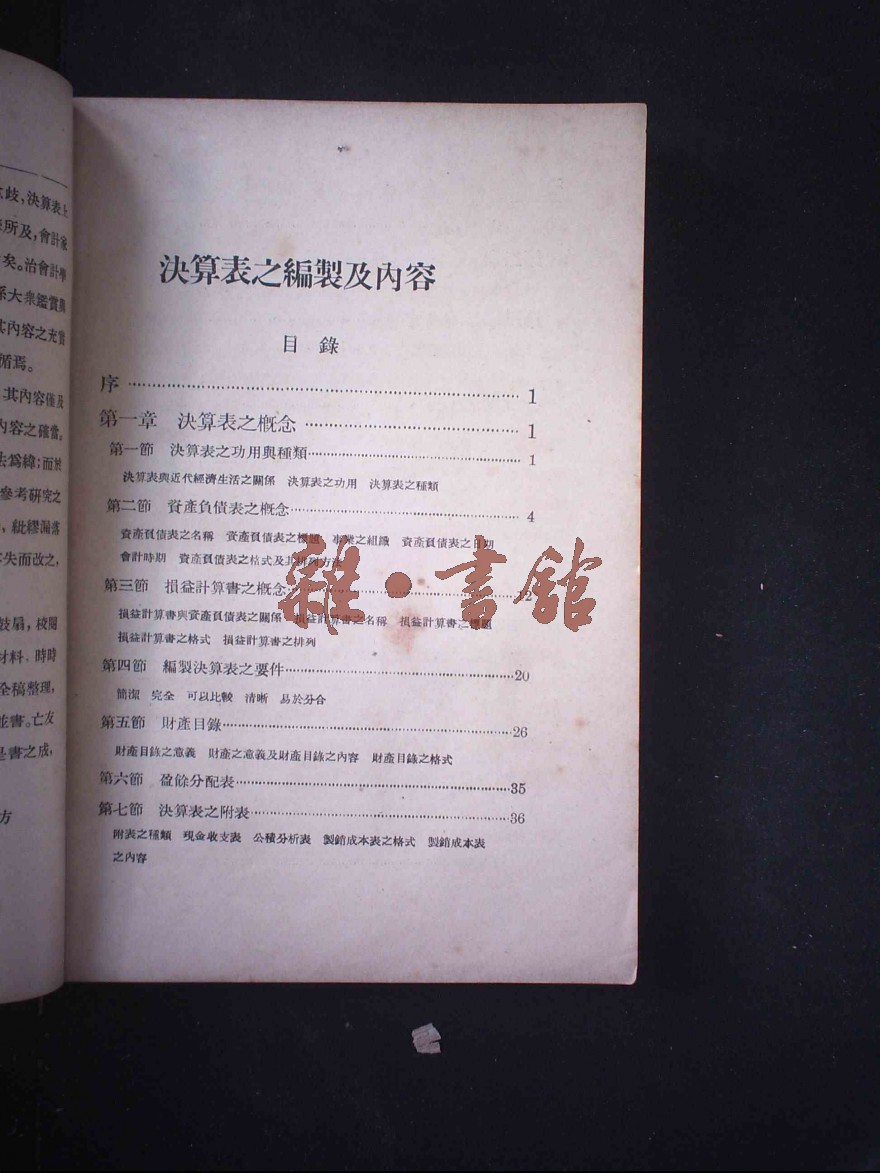 決算表之編製及內容
目錄
序 1
第一章 決算表之概念 1
第一節 決算表之功用與種類 1
決算表與近代經濟生活之關係 決算表之功用 決算表之種類
第二節 資產負債表之概念 4
資產負債表之名稱 資產負債表之標題 事業之組織 資產負債表之日期
會計時期 資產負債表之格式及其排列方法
第三節 損益計算書之概念 12
損益計算書與資產負債表之關係 損益計算書之名稱 損益計算書之標題
損益計算書之格式 損益計算書之排列
第四節 編製決算表之要件 20
簡潔 完全 可以比較 清晰 易於分合
第五節 財產目錄 26
財產目錄之意義 財產之意義及財產目錄之內容 財產目錄之格式
第六節 盈餘分配表 35
第七節 決算表之附表 36
附表之種類 現金收支表 公積分析表 製銷成本表之格式 製銷成本表
之內容
雜·書館
歧,決算表上
所及,會計家
矣。治會計學
系大衆鑑賞與
其內容之充實
循焉。
其內容僅及
內容之確當,
法爲緯;而於
參考研究之
,紕繆漏落
失而改之,
鼓扇,校閱
材料,時時
全稿整理,
並書。亡友
是書之成,
方